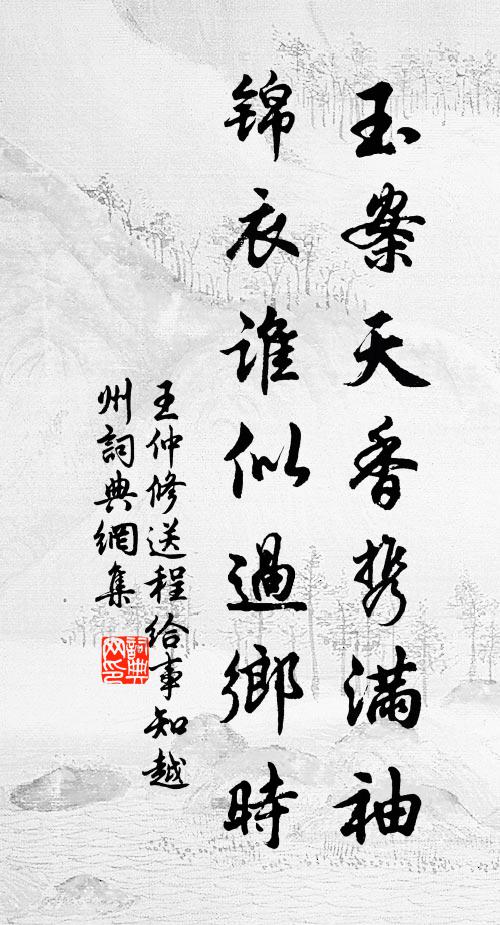 玉案天香携满袖
锦衣谁似過鄉時
王仲修送程给事知越
州詞典網集
詞典